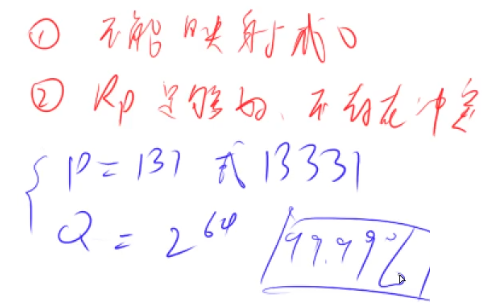 ① 不能映射成0
② Rp足够好，不存在冲突
P = 131 或 13331
Q = 2^64 99.99%